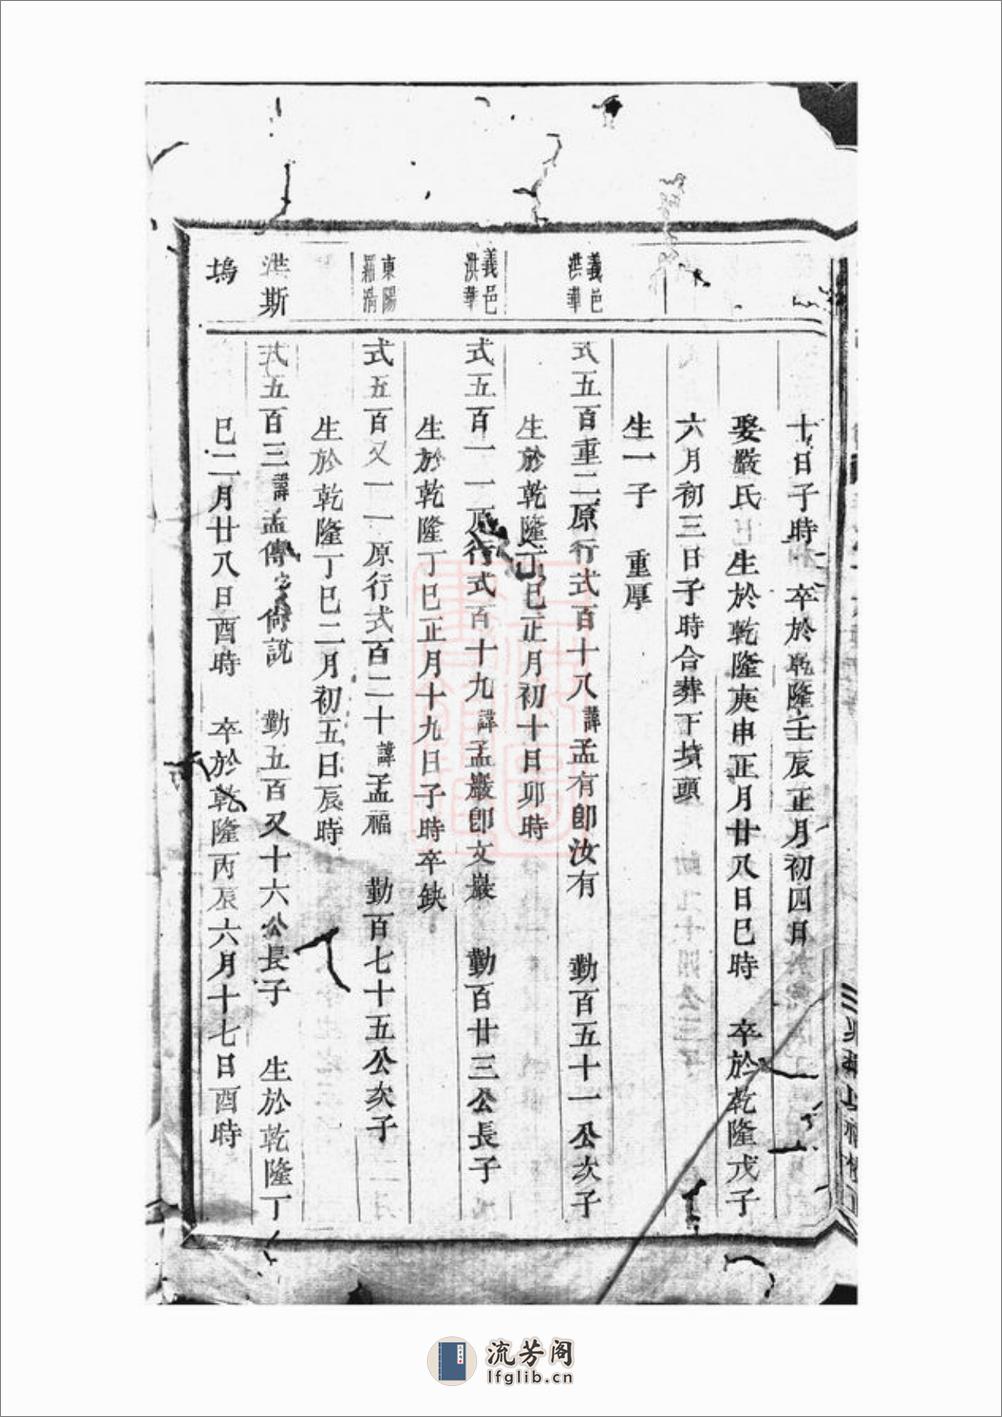 十日子時 卒於乾隆壬辰正月初四日
娶嚴氏 生於乾隆庚申正月廿八日巳時 卒於乾隆戊子
六月初三日子時合葬下墳頭
生一子 重厚
義邑
洪華
式五百重二原行式百十八諱孟有卽汝有 勤百五十一公次子
生於乾隆丁巳正月初十日卯時
義邑
洪華
式五百一一原行式百十九諱孟巖卽文巖 勤百廿三公長子
生於乾隆丁巳正月十九日子時卒缺
東陽
式五百又一一原行式百二十諱孟福 勤百七十五公次子
生於乾隆丁巳二月初五日辰時
洪斯
式五百三諱孟傳字 說 勤五百又十六公長子 生於乾隆丁
塢
巳二月廿八日酉時 卒於乾隆丙辰六月十七日酉時
流芳阁
lfglib.cn